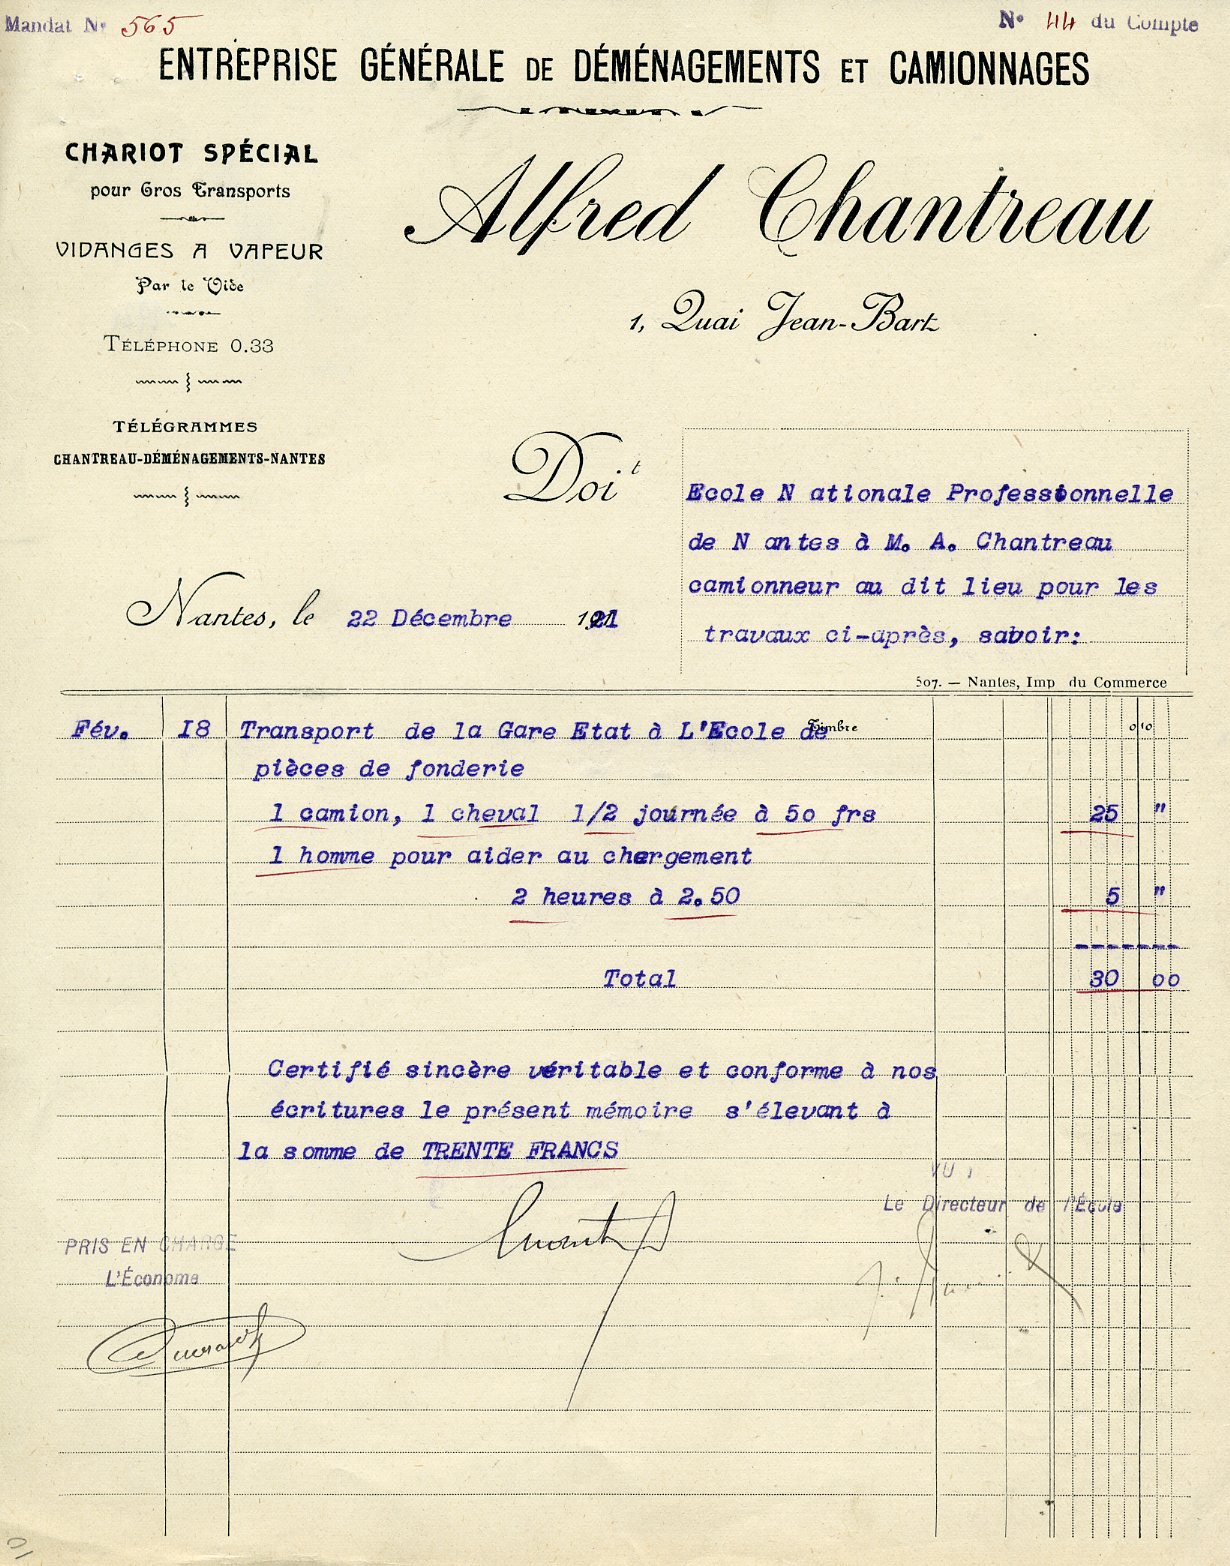 Mandat N° 565
N° 44 du Compte
ENTREPRISE GÉNÉRALE DE DÉMÉNAGEMENTS ET CAMIONNAGES
CHARIOT SPÉCIAL
pour Gros Transports
VIDANGES A VAPEUR
Par le Vide
TÉLÉPHONE 0.33
TÉLÉGRAMMES
CHANTREAU-DÉMÉNAGEMENTS-NANTES
Alfred Chantreau
1, Quai Jean-Bart
Doit
Ecole N ationale Professionnelle
de N antes à M. A. Chantreau
camionneur au dit lieu pour les
travaux ci-après, savoir:
Nantes, le 22 Décembre 1921
507. — Nantes, Imp du Commerce
Fév. 18 Transport de la Gare Etat à L'Ecole de Timbre 0/0
pièces de fonderie
1 camion, 1 cheval 1/2 journée à 50 frs 25 "
1 homme pour aider au chargement
2 heures à 2.50 5 "
-------
Total 30 00
Certifié sincère véritable et conforme à nos
écritures le présent mémoire s'élevant à
la somme de TRENTE FRANCS
VU,
Le Directeur de l'École
PRIS EN CHARGE
L'Économe